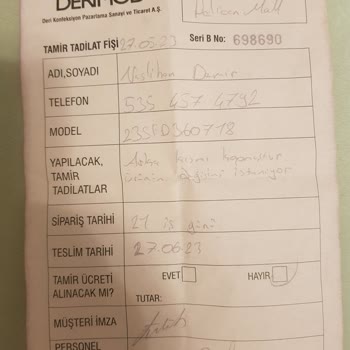 DERİMOD
Deri Konfeksiyon Pazarlama Sanayi ve Ticaret A.Ş.
Mall
TAMİR TADİLAT FİŞİ 27.05.23 Seri B No: 698690
ADI,SOYADI Aslıhan Demir
TELEFON 535 457 4792
MODEL 23SFD360718
YAPILACAK, TAMİR TADİLATLAR
Arka kısmı kopmuştur
ürünün değişimi isteniyor
SİPARİŞ TARİHİ 21 iş günü
TESLİM TARİHİ 27.06.23
TAMİR ÜCRETİ ALINACAK MI? EVET HAYIR
TUTAR:
MÜŞTERİ İMZA
PERSONEL